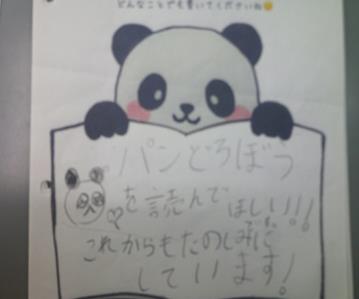 どんなことでも書いてくださいね
パンどろぼう
を読んでほしい!!!
これからもたのしみに
しています!